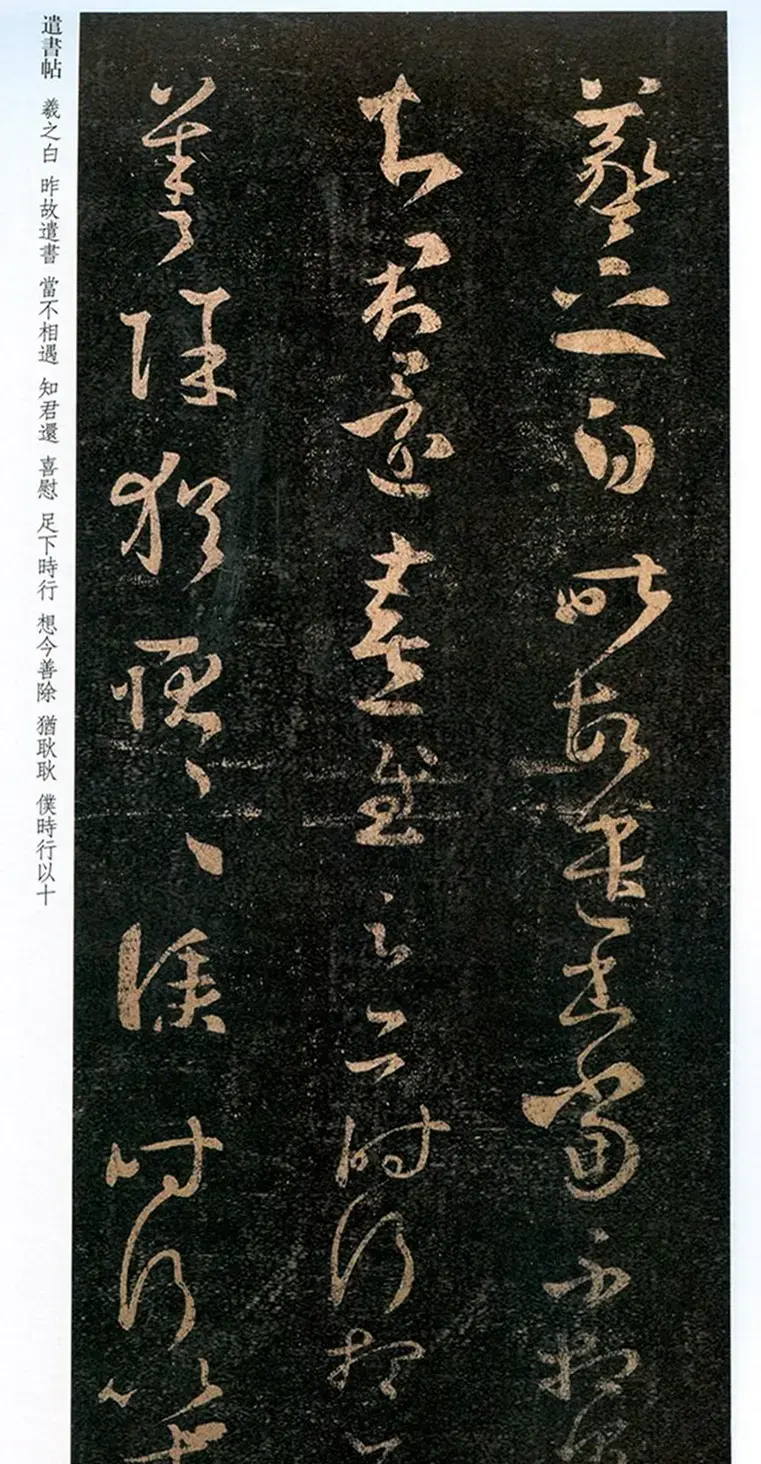 羲之白昨故遣書當不相遇
知君還喜慰足下時行想今
善除猶耿耿僕時行以十
遣書帖 羲之白 昨故遣書 當不相遇 知君還 喜慰 足下時行 想今善除 猶耿耿 僕時行以十